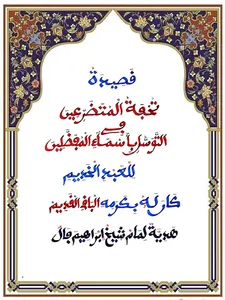 قصيدة
تحفة المتضرعين
في
التوسل بأسماء المفضلين
للعبد الخديم
كان له بكرمه الباقي القديم
هدية لمام شيخ ابراهيم جال